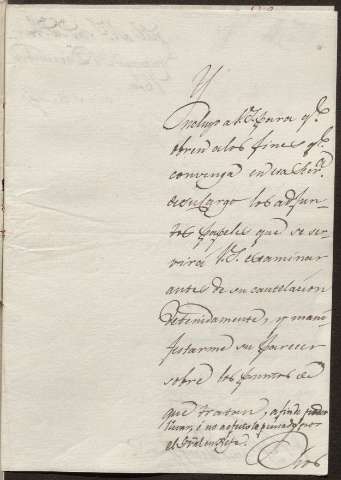 Yncluyo a V.S. para q.e
obren a los fines q.e
convenga en esa
de su Cargo los adjun-
tos papeles que se ser-
virá V.S. examinar
antes de su cancelacion
detenidamente, y mani-
festarme su parecer
sobre los puntos de
que tratan, a fin de poder
llevar ó no a efecto lo por
el
Dios